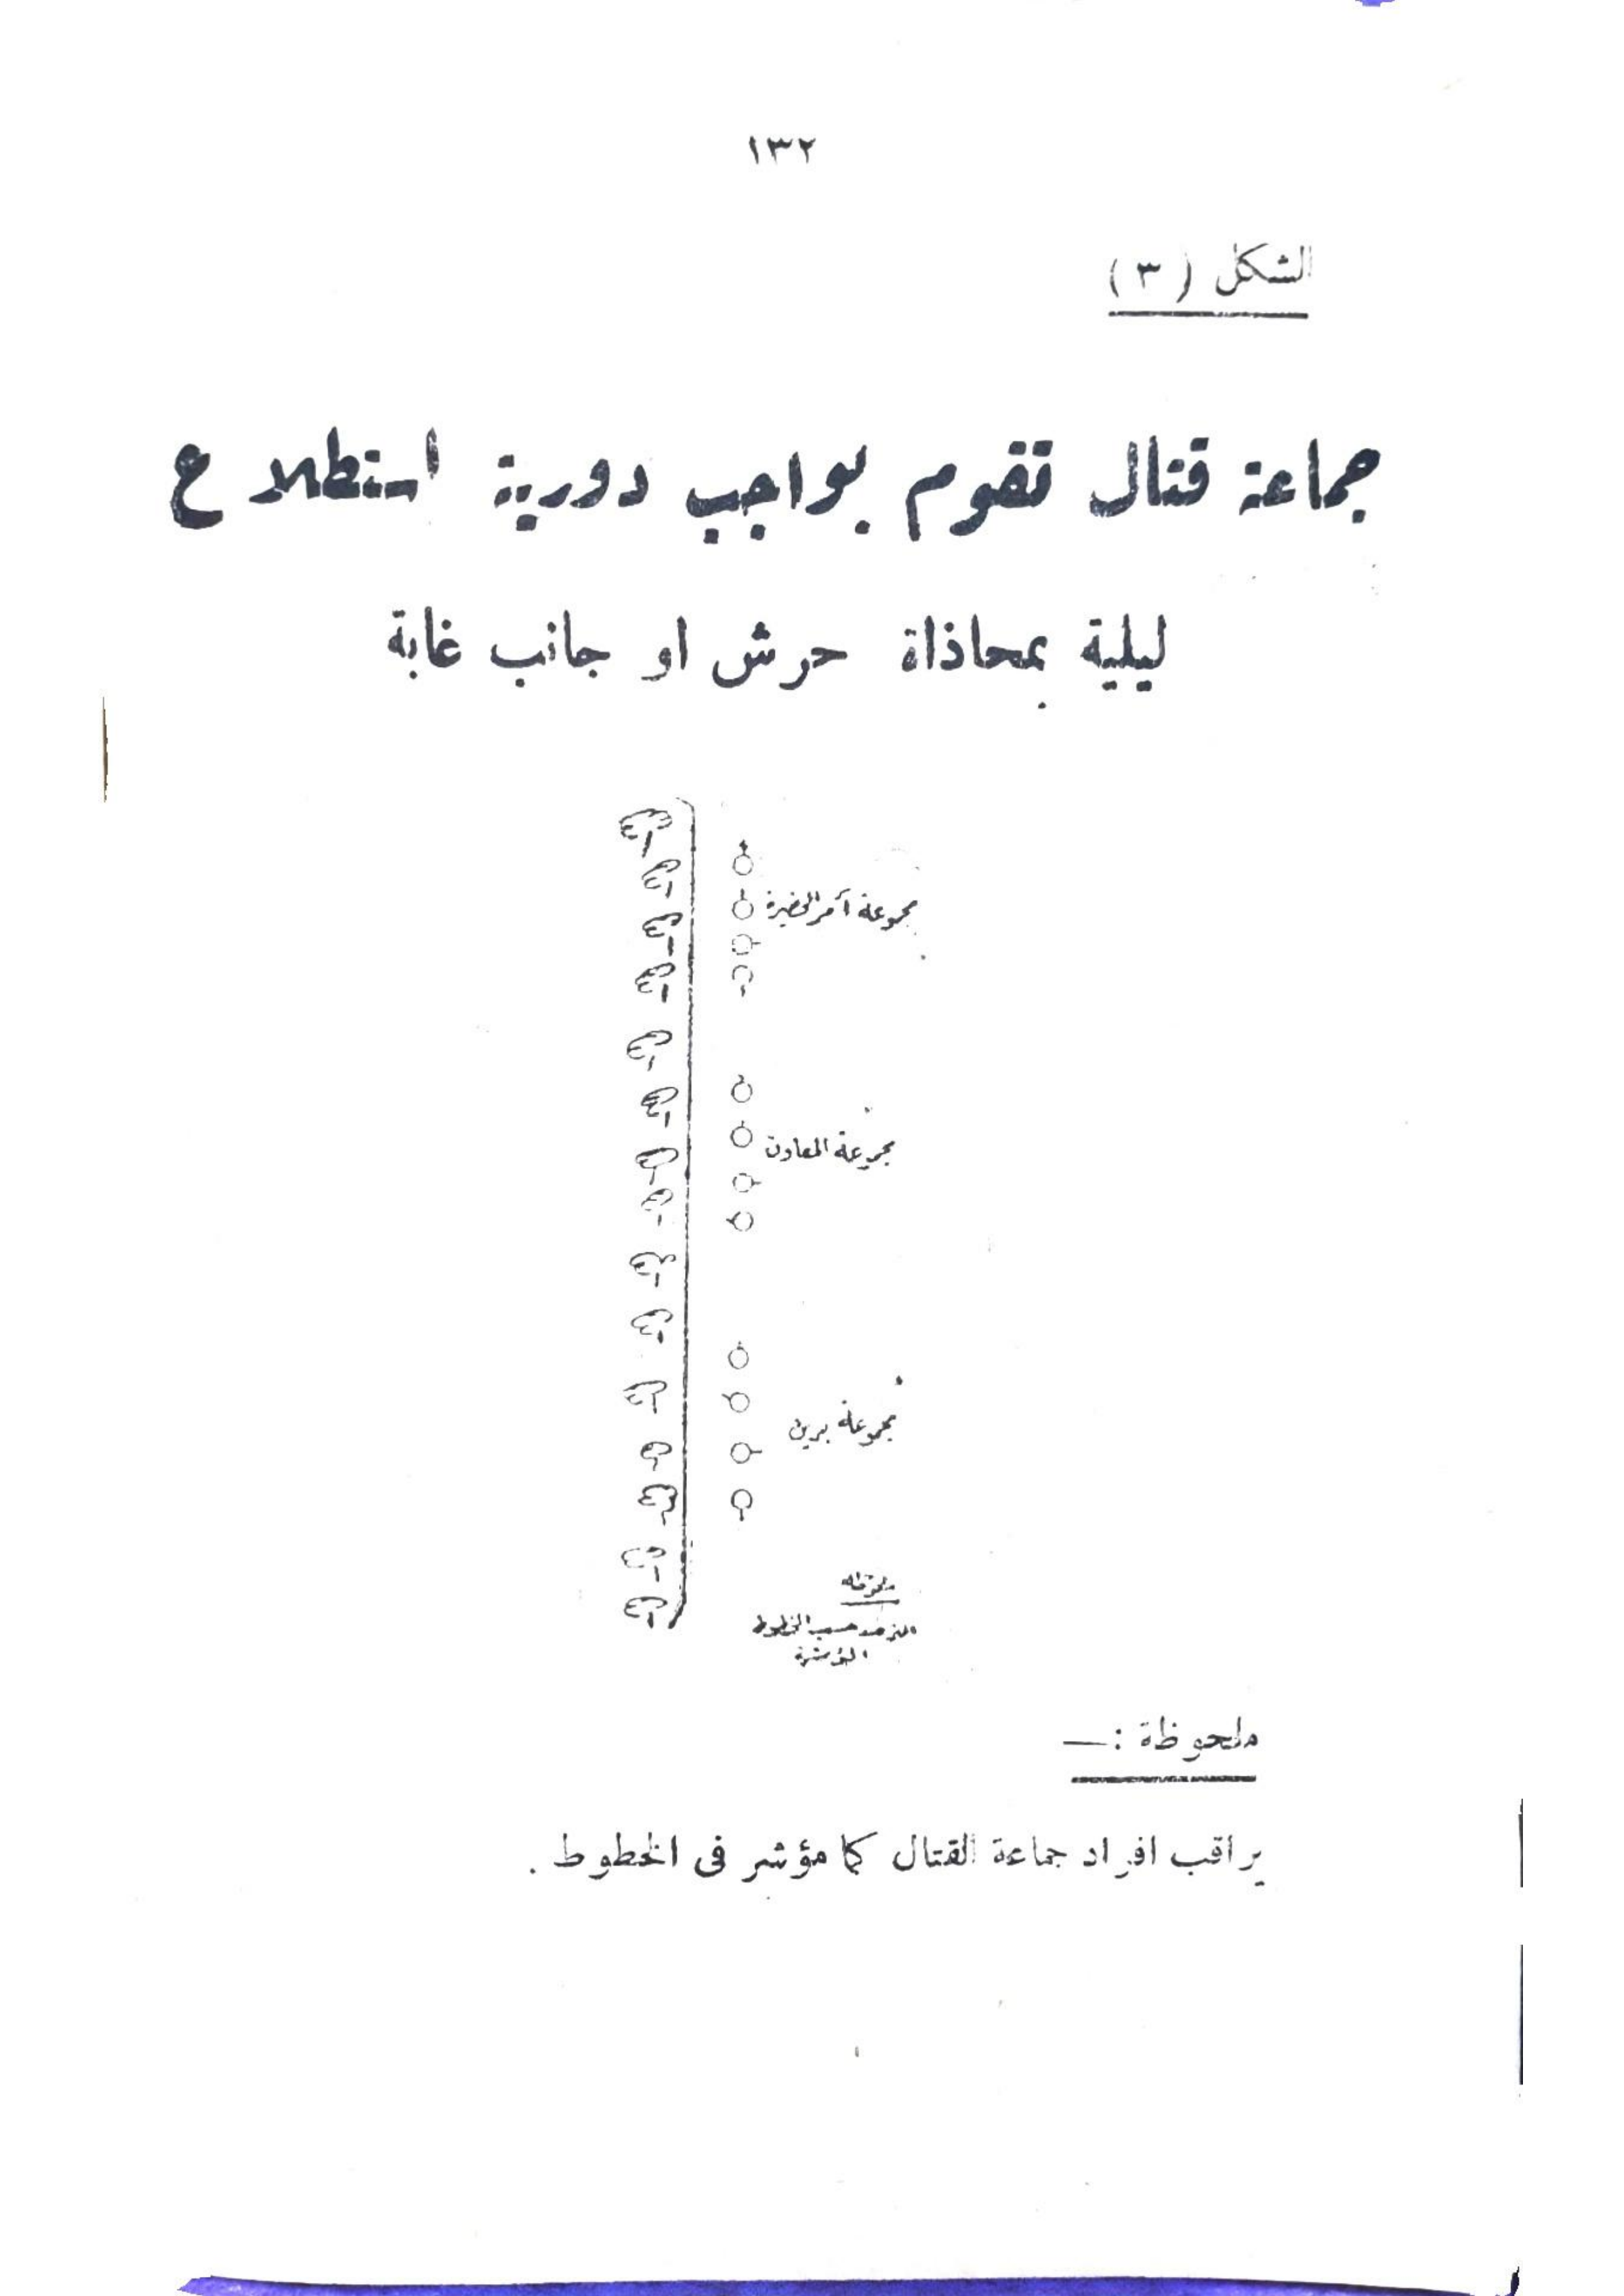 ١٣٢
الشكل ( ٣ )
جماعة قتال تقوم بواجب دورية استطلاع
ليلية بمحاذاة حرش او جانب غابة
مجموعة آمر الحضيرة
مجموعة المعاون
مجموعة برين
حسب الخطوط
المؤشرة
ملحوظة :ــ
يراقب افراد جماعة القتال كما مؤشر فى الخطوط .